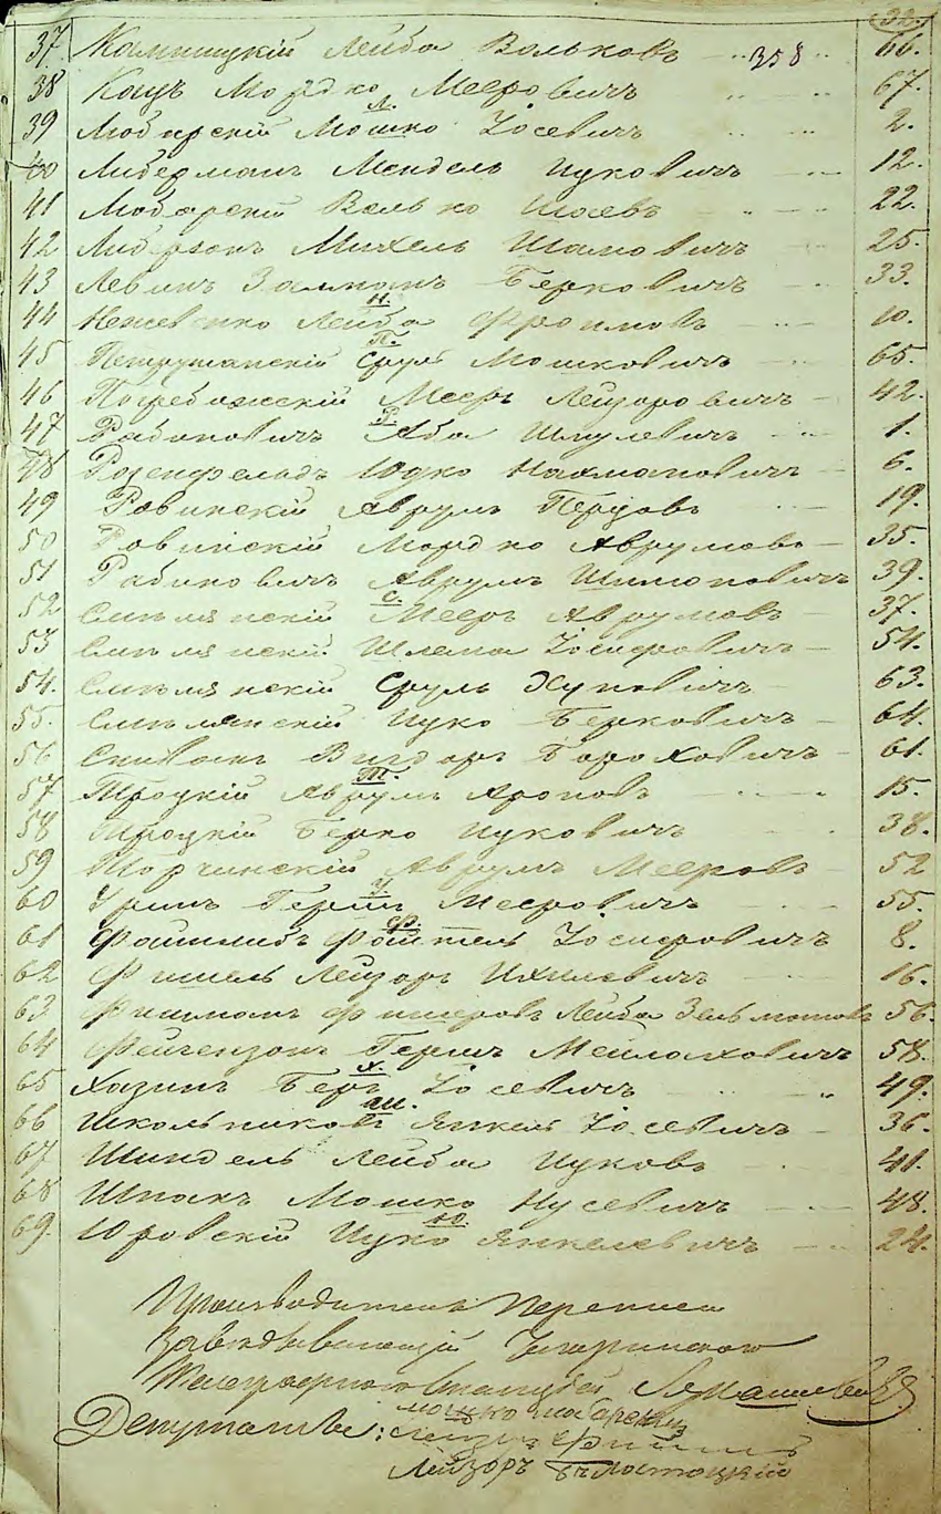 32.
37. Каменицкій Лейба Вольковъ 358 66.
38 Кацъ Мордко Мееровичъ 67.
Л.
39 Любарскій Мошко Іосевичъ 2.
40 Либерманъ Мендель Ицковичъ 12.
41 Любарскій Велько Шаевъ 22.
42 Либерзонъ Михель Шамовичъ 25.
43 Левинъ Залманъ Берковичъ 33.
Н.
44 Нежевенко Лейба Фроимовъ 10.
П.
45 Петрушанскій Сруль Мошковичъ 65.
46 Погребижскій Мееръ Лейзоровичъ 42.
Р.
47 Рабиновичъ Аба Шмулевичъ 1.
48 Розенфельдъ Юдко Нахмановичъ 6.
49 Ровинскій Аврумъ Перцовъ 19.
50 Ровинскій Мордко Аврумовъ 35.
51 Рабиновичъ Аврумъ Шимоновичъ 39.
С.
52 Смѣлянскій Мееръ Аврумовъ 37.
53 Смѣлянскій Шлема Іосифовичъ 54.
54. Смѣлянскій Сруль 63.
55. Смѣлянскій Ицко Берковичъ 64.
56 Спивакъ Вигдоръ Бороховичъ 61.
Т.
57 Троцкій Аврумъ Ароновъ 15.
58 Троцкій Берко Ицковичъ 38.
59 Торчинскій Аврумъ Мееровъ 52
У.
60 Уринъ Гершъ Мееровичъ 55.
Ф.
61 Файтель Іосифовичъ 8.
62 Фишель Лейзоръ Ихилевичъ 16.
63 Лейба Зельмановъ 56.
64 Фейгензонъ Гершъ Мейлаховичъ 58.
Х.
65 Хазинъ Беръ Іосевичъ 49.
Ш.
66 Школьниковъ Янкель Іосевичъ 36.
67 Шиндель Лейба Ицковъ 41.
68 Шпакъ Мошко Нусевичъ 48.
Ю.
69. Юровскій Ицко Янкелевичъ 24.
Производитель переписи
Завѣдывающій Чигиринскою
Депутаты: Мошко
Лейзоръ Бѣлостоцкій